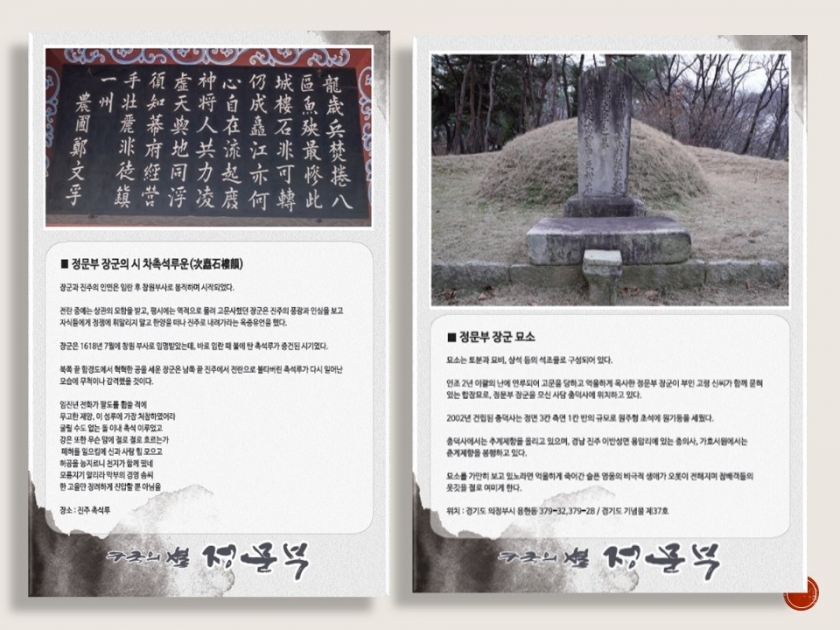 龍歲兵焚捲八
區魚殃最慘此
城樓石非可轉
仍成矗江亦何
心自在流起廢
神将人共力凌
虛天與地同浮
須知幕府經營
手壯麗非徒鎭
一州
農圃鄭文孚
■ 정문부 장군의 시 차촉석루운(次矗石樓韻)
장군과 진주의 인연은 임란 후 창원부사로 봉직하며 시작되었다.
전란 중에는 상관의 모함을 받고, 평시에는 역적으로 몰려 고문사했던 장군은 진주의 풍광과 인심을 보고
자식들에게 정쟁에 휘말리지 말고 한양을 떠나 진주로 내려가라는 옥중유언을 했다.
장군은 1618년 7월에 창원 부사로 임명받았는데, 바로 임란 때 불에 탄 촉석루가 중건된 시기였다.
북쪽 끝 함경도에서 혁혁한 공을 세운 장군은 남쪽 끝 진주에서 전란으로 불타버린 촉석루가 다시 일어난
모습에 무척이나 감격했을 것이다.
임진년 전화가 팔도를 휩쓸 적에
무고한 재앙, 이 성루에 가장 처참하였어라
굴릴 수도 없는 돌 이내 촉석 이루었고
강은 또한 무슨 맘에 절로 절로 흐르는가
폐허를 일으킴에 신과 사람 힘 모으고
허공을 능지르니 천지가 함께 떴네
모름지기 알리라 막부의 경영 솜씨
한 고을만 장려하게 진압할 뿐 아님을
장소 : 진주 촉석루
정문부
■ 정문부 장군 묘소
묘소는 토분과 묘비, 상석 등의 석조물로 구성되어 있다.
인조 2년 이괄의 난에 연루되어 고문을 당하고 억울하게 옥사한 정문부 장군이 부인 고령 신씨가 함께 묻혀
있는 합장묘로, 정문부 장군을 모신 사당 충덕사에 위치하고 있다.
2002년 건립된 충덕사는 정면 3칸 측면 1칸 반의 규모로 원주형 초석에 원기둥을 세웠다.
충덕사에서는 추계제향을 올리고 있으며, 경남 진주 이반성면 용암리에 있는 충의사, 가호서원에서는
춘계제향을 봉행하고 있다.
묘소를 가만히 보고 있노라면 억울하게 죽어간 슬픈 영웅의 비극적 생애가 오롯이 전해지며 참배객들의
옷깃을 절로 여미게 한다.
위치 : 경기도 의정부시 용현동 379-32,379-28 / 경기도 기념물 제37호
정문부